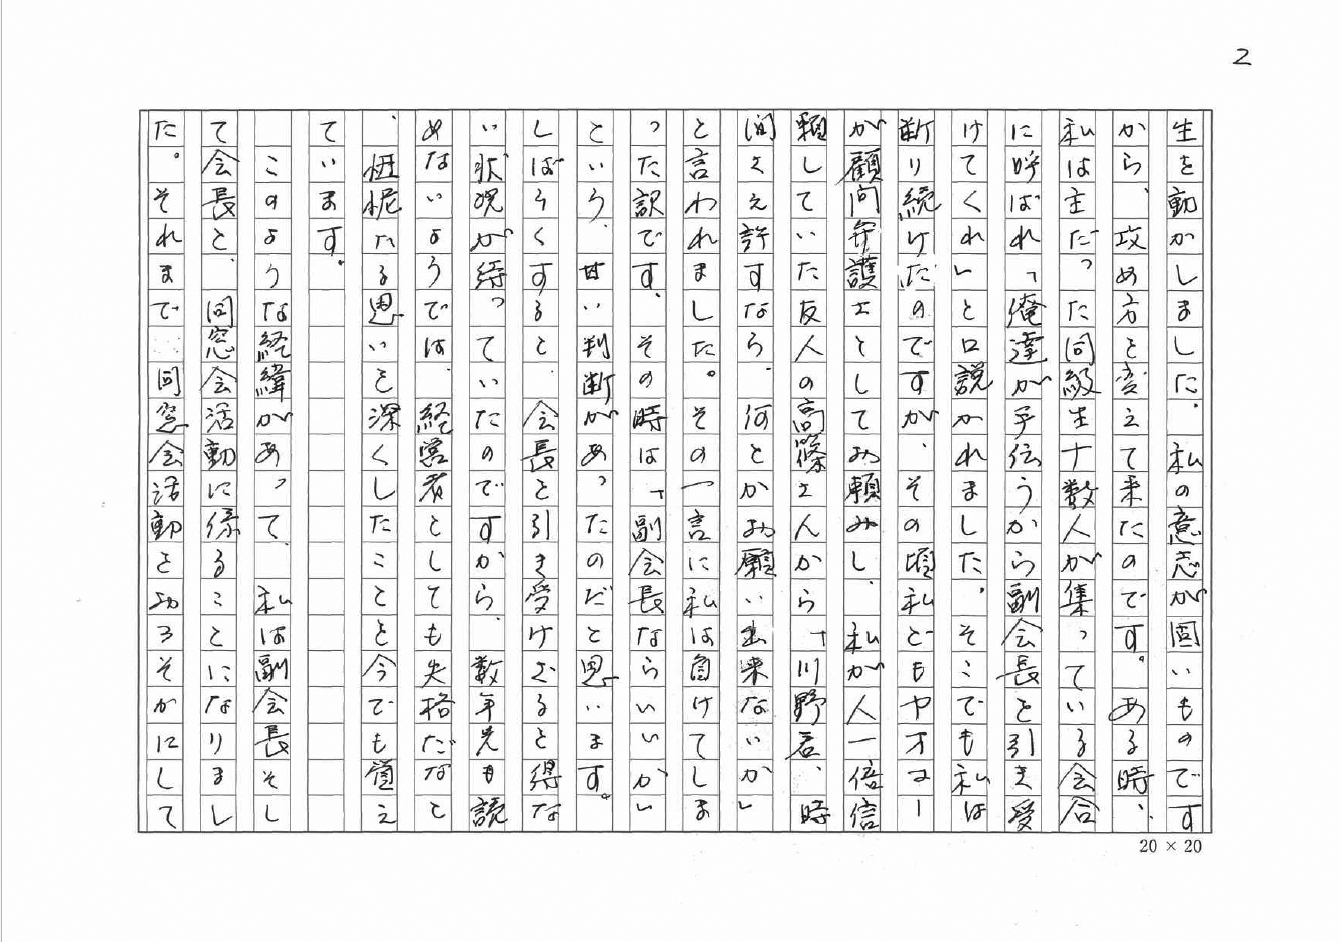 2
生を動かしました。私の意志が固いものです
から、攻め方を変えて来たのです。ある時、
私は主だった同級生十数人が集っている会合
に呼ばれ「俺達が手伝うから副会長を引き受
けてくれ」と口説かれました。そこでも私は
断り続けたのですが、その頃私どもヤオコー
が顧問弁護士としてお頼みし、私が人一倍信
頼していた友人の高篠さんから「川野君、時
間さえ許すなら、何とかお願い出来ないか」
と言われました。その一言に私は負けてしま
った訳です。その時は「副会長ならいいか」
という、甘い判断があったのだと思います。
しばらくすると、会長を引き受けざるを得な
い状況が待っていたのですから、数年先も読
めないようでは、経営者としても失格だなと
、忸怩たる思いを深くしたことを今でも覚え
ています。
このような経緯があって、私は副会長そし
て会長と、同窓会活動に係ることになりまし
た。それまで同窓会活動をおろそかにして
20 × 20